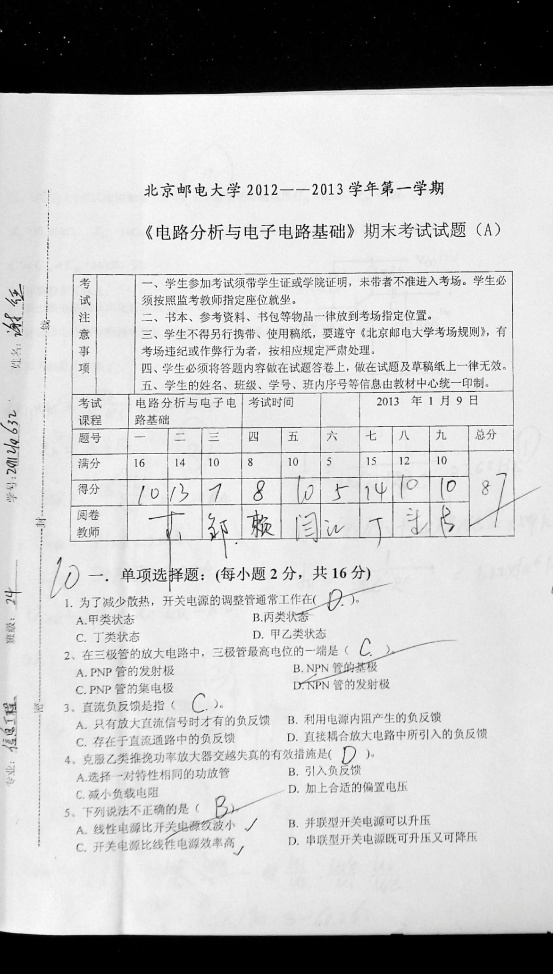 北京邮电大学2012——2013学年第一学期
《电路分析与电子电路基础》期末考试试题（A）
考试注意事项
一、学生参加考试须带学生证或学院证明，未带者不准进入考场。学生必须按照监考教师指定座位就坐。
二、书本、参考资料、书包等物品一律放到考场指定位置。
三、学生不得另行携带、使用稿纸，要遵守《北京邮电大学考场规则》，有考场违纪或作弊行为者，按相应规定严肃处理。
四、学生必须将答题内容做在试题答卷上，做在试题及草稿纸上一律无效。
五、学生的姓名、班级、学号、班内序号等信息由教材中心统一印制。
考试课程 电路分析与电子电路基础 考试时间 2013 年 1 月 9 日
题号 一 二 三 四 五 六 七 八 九 总分
满分 16 14 10 8 10 5 15 12 10
得分 10 13 7 8 10 5 14 10 10 87
阅卷教师
10 一．单项选择题：(每小题 2 分，共 16 分)
1. 为了减少散热，开关电源的调整管通常工作在( D. )。
A.甲类状态 B.丙类状态
C. 丁类状态 D. 甲乙类状态
2、在三极管的放大电路中，三极管最高电位的一端是（ C. ）。
A. PNP 管的发射极 B. NPN 管的基极
C. PNP 管的集电极 D. NPN 管的发射极
3、直流负反馈是指（ C. ）。
A. 只有放大直流信号时才有的负反馈 B. 利用电源内阻产生的负反馈
C. 存在于直流通路中的负反馈 D. 直接耦合放大电路中所引入的负反馈
4、克服乙类推挽功率放大器交越失真的有效措施是( D )。
A.选择一对特性相同的功放管 B. 引入负反馈
C. 减小负载电阻 D. 加上合适的偏置电压
5、下列说法不正确的是（ B ）。
A. 线性电源比开关电源纹波小 B. 并联型开关电源可以升压
C. 开关电源比线性电源效率高 D. 串联型开关电源既可升压又可降压
姓名：
学号：
班级： 24
专业： 信息工程
线
封
密